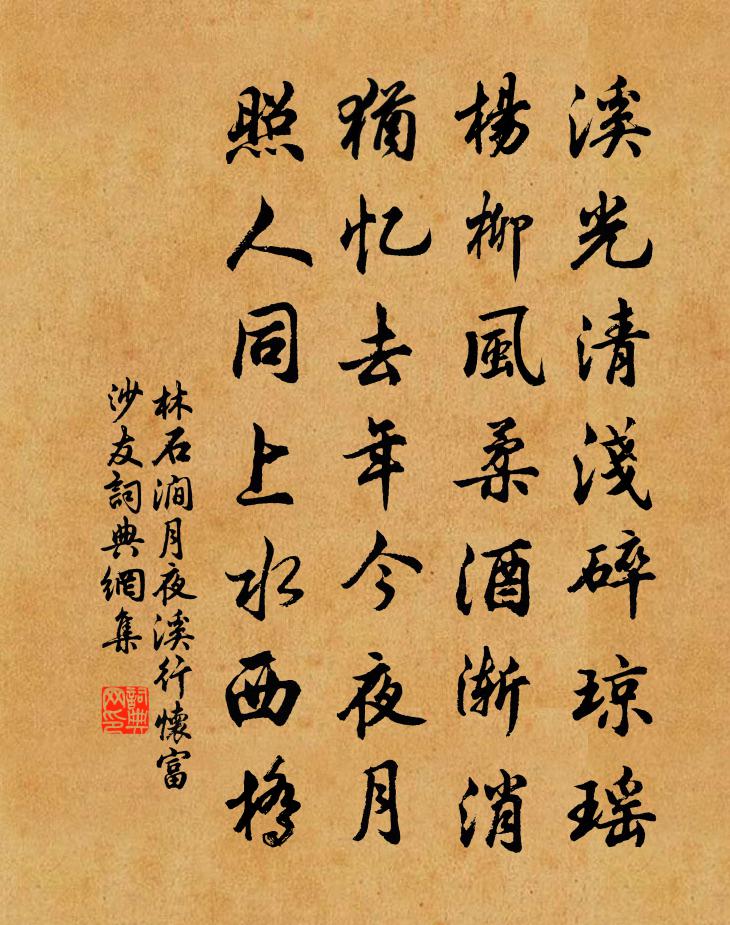 溪光清淺碎琼瑶
楊柳風柔酒渐消
猶忆去年今夜月
照人同上水西橋
林石澗月夜溪行懷富
沙友詞典網集
詞典网印